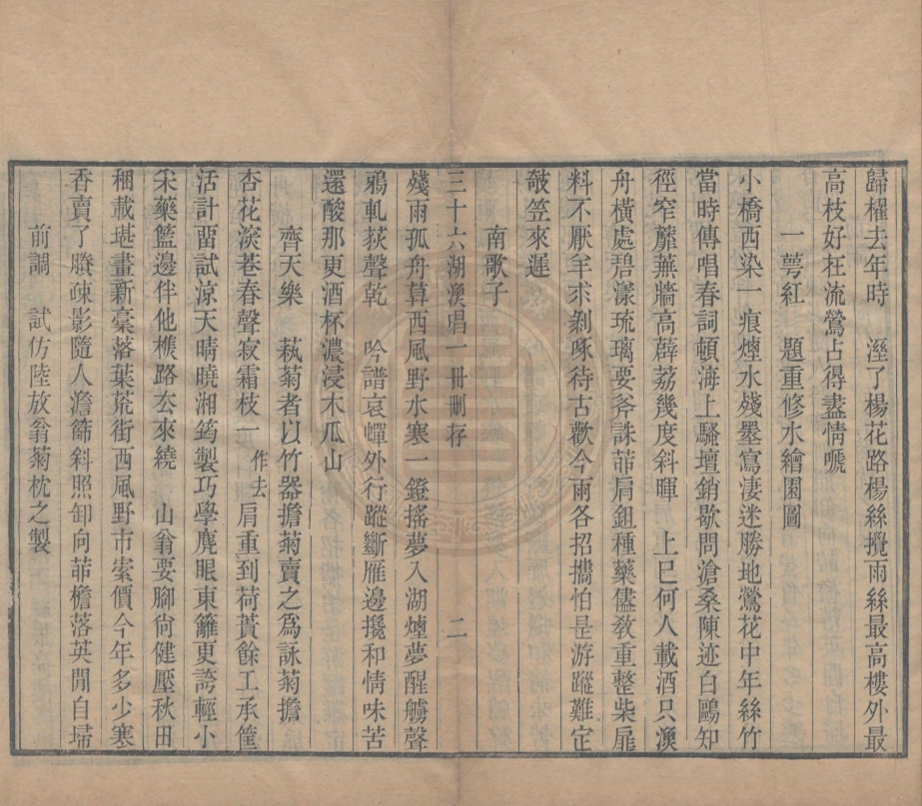 歸櫂去年時　溼了楊花路楊絲攪雨絲最高樓外最
高枝好枉流鶯占得盡情嗁
一萼紅　題重修水繪園圖
小橋西染一痕煙水殘墨寫淒迷勝地鶯花中年絲竹
當時傳唱春詞頓海上騷壇銷歇問滄桑陳迹白鷗知
徑窄蘼蕪牆高薜荔幾度斜暉　上巳何人載酒只漁
舟橫處碧漾琉璃要斧誅茆肩鉏種藥儘敎重整柴扉
料不厭羊求剝啄待古歡今雨各招攜怕是游蹤難定
攲笠來遲
南歌子
三十六湖漁唱一冊刪存　二
殘雨孤舟算西風野水寒一鐙搖夢入湖煙夢醒觿聲
鴉軋荻聲乾　吟譜哀蟬外行蹤斷雁邊攙和情味苦
還酸那更酒杯濃浸木瓜山
齊天樂　蓺菊者以竹器擔菊賣之爲詠菊擔
杏花深巷春聲寂霜枝一作去肩重到荷蕢餘工承筐
活計畱試涼天晴曉湘筠製巧學麂眼東籬更誇輕小
宋藥籃邊伴他樵路厺來繞　山翁要腳尙健壓秋田
稛載堪畫新稾落葉荒街西風野市索價今年多少寒
香賣了賸疎影隨人澹篩斜照卸向茆檐落英閒自埽
前調　試仿陸放翁菊枕之製